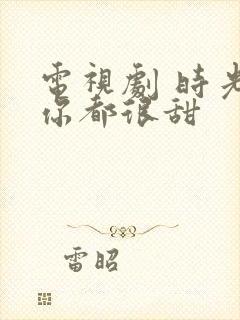 電視劇 時光
你都很甜
雷昭